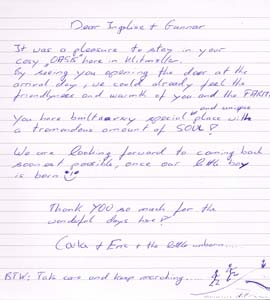 Dear Ingeline + Gunnar
It was a pleasure to stay in your
cosy "OASIS" here in Klitmøller.
By seeing you opening the door at the
arrival day, we could already feel the
friendlyness and warmth of you and the
and unique
You have built a very special place with
a tremendous amount of SOUL!
We are looking forward to coming back
soonest possible, once our little boy
is born
Thank YOU so much for the
wonderful days here!
Carla + Eric + the little unborn....
BTW: Take care and keep marching.....